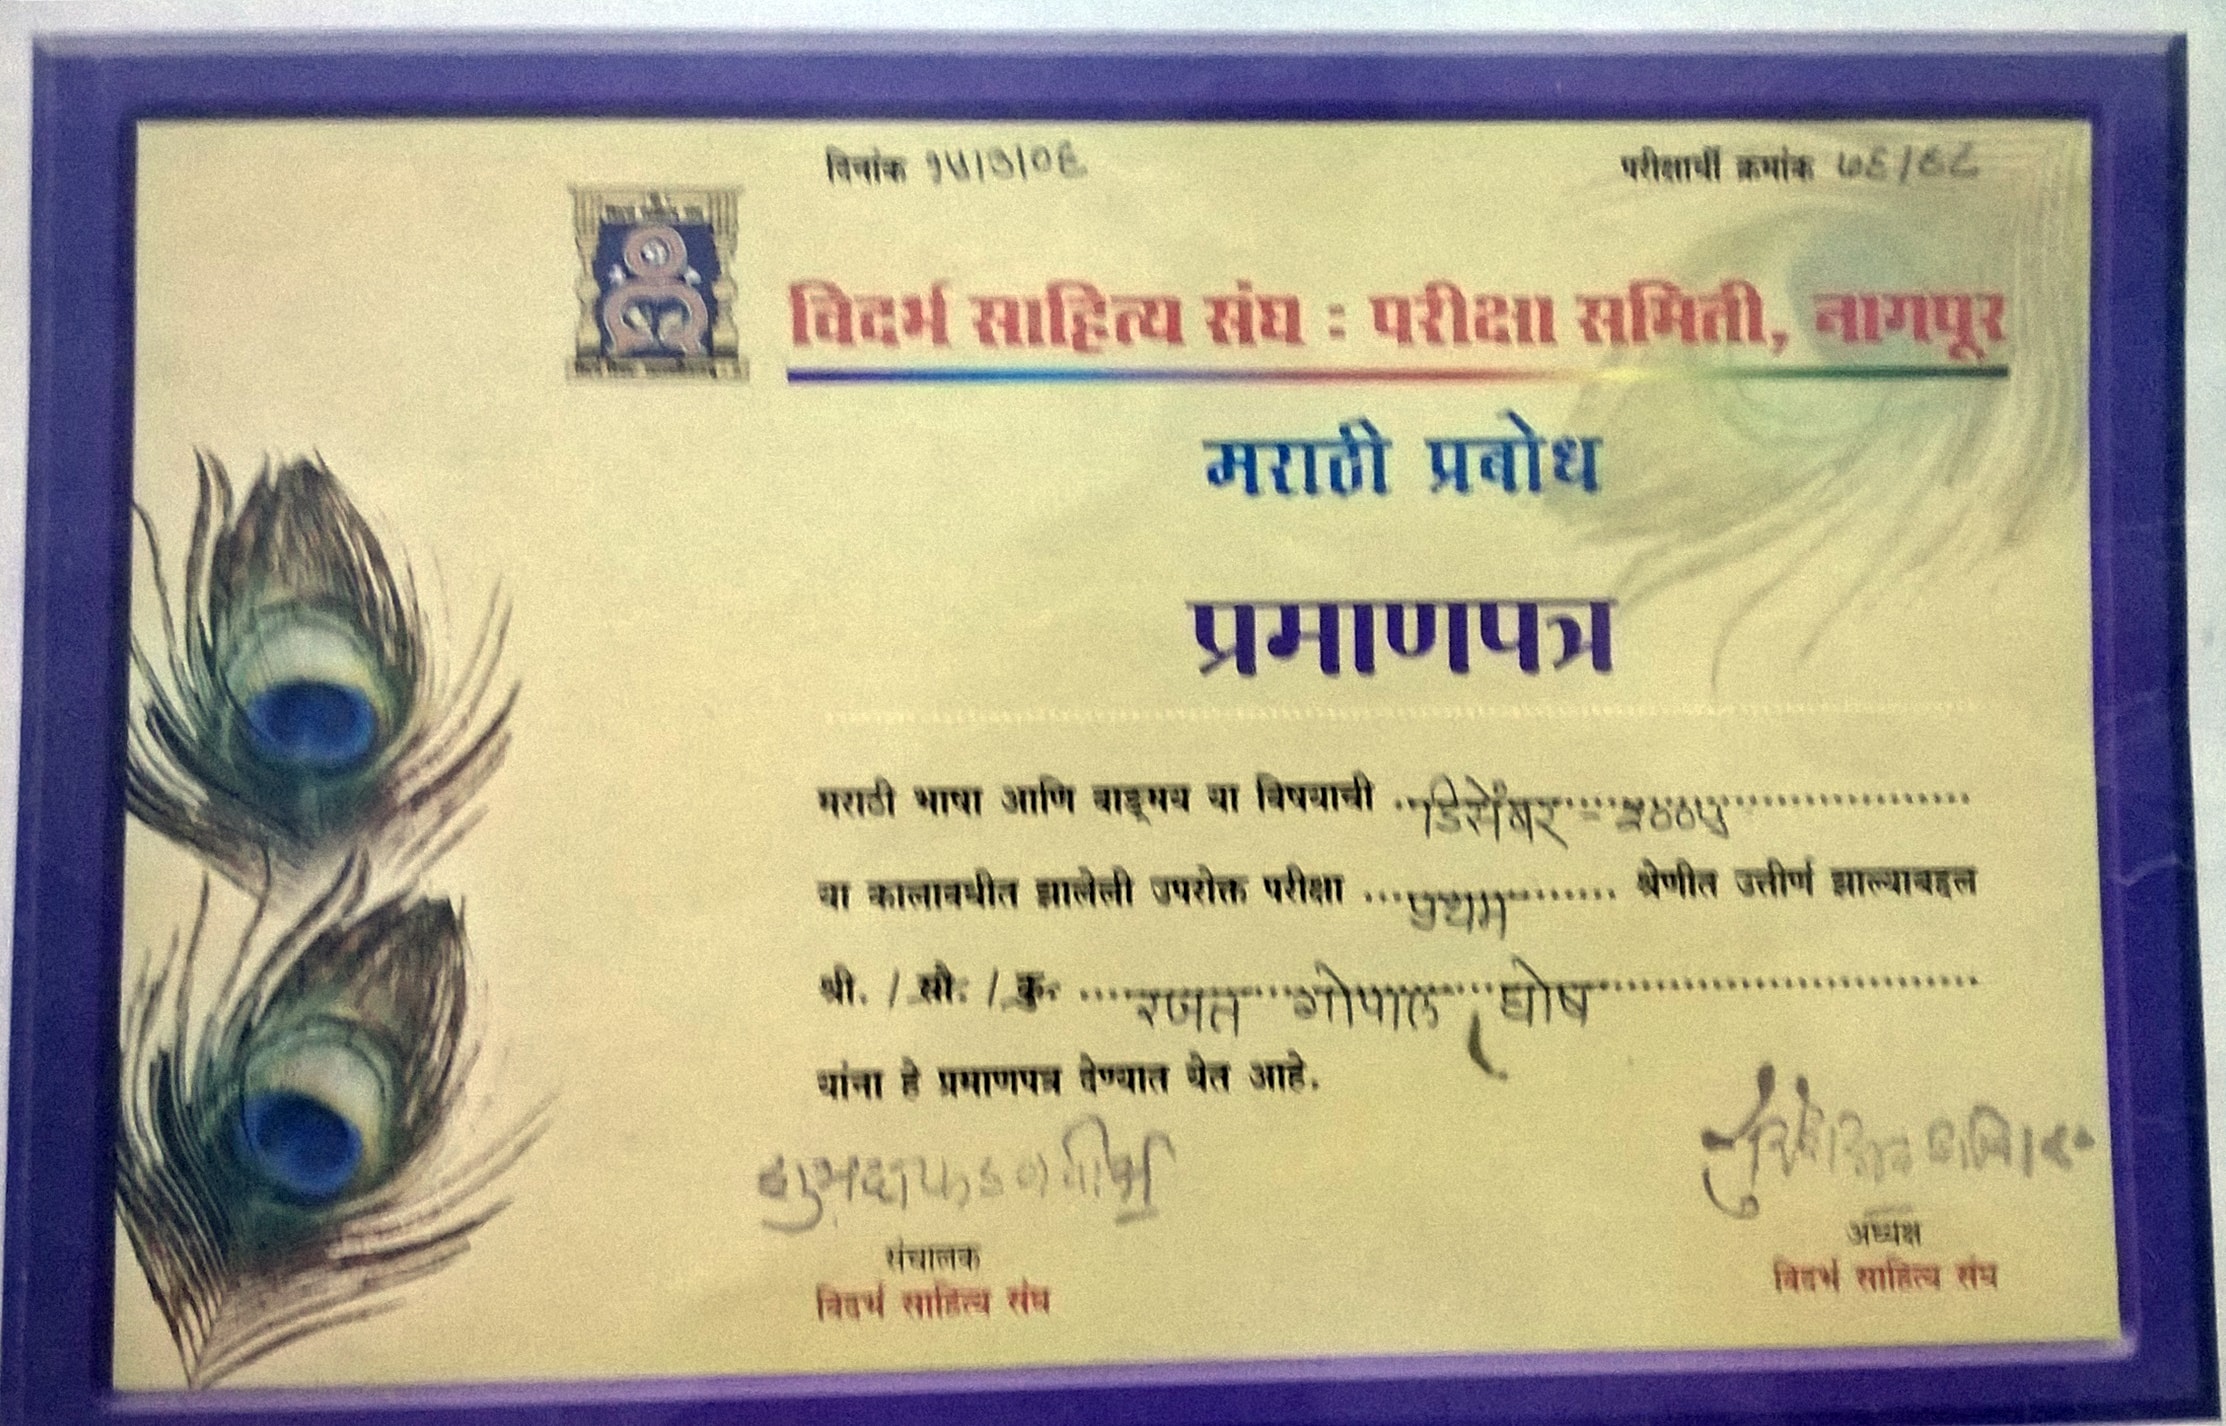 दिनांक १५/३/०६ परीक्षार्थी क्रमांक ७६/६८
विदर्भ साहित्य संघ : परीक्षा समिती, नागपूर
मराठी प्रबोध
प्रमाणपत्र
मराठी भाषा आणि वाङ्मय या विषयाची डिसेंबर - २००५
या कालावधीत झालेली उपरोक्त परीक्षा प्रथम श्रेणीत उत्तीर्ण झाल्याबद्दल
श्री. / सौ. / कु. रजत गोपाल घोष
यांना हे प्रमाणपत्र देण्यात येत आहे.
संचालक
विदर्भ साहित्य संघ
अध्यक्ष
विदर्भ साहित्य संघ